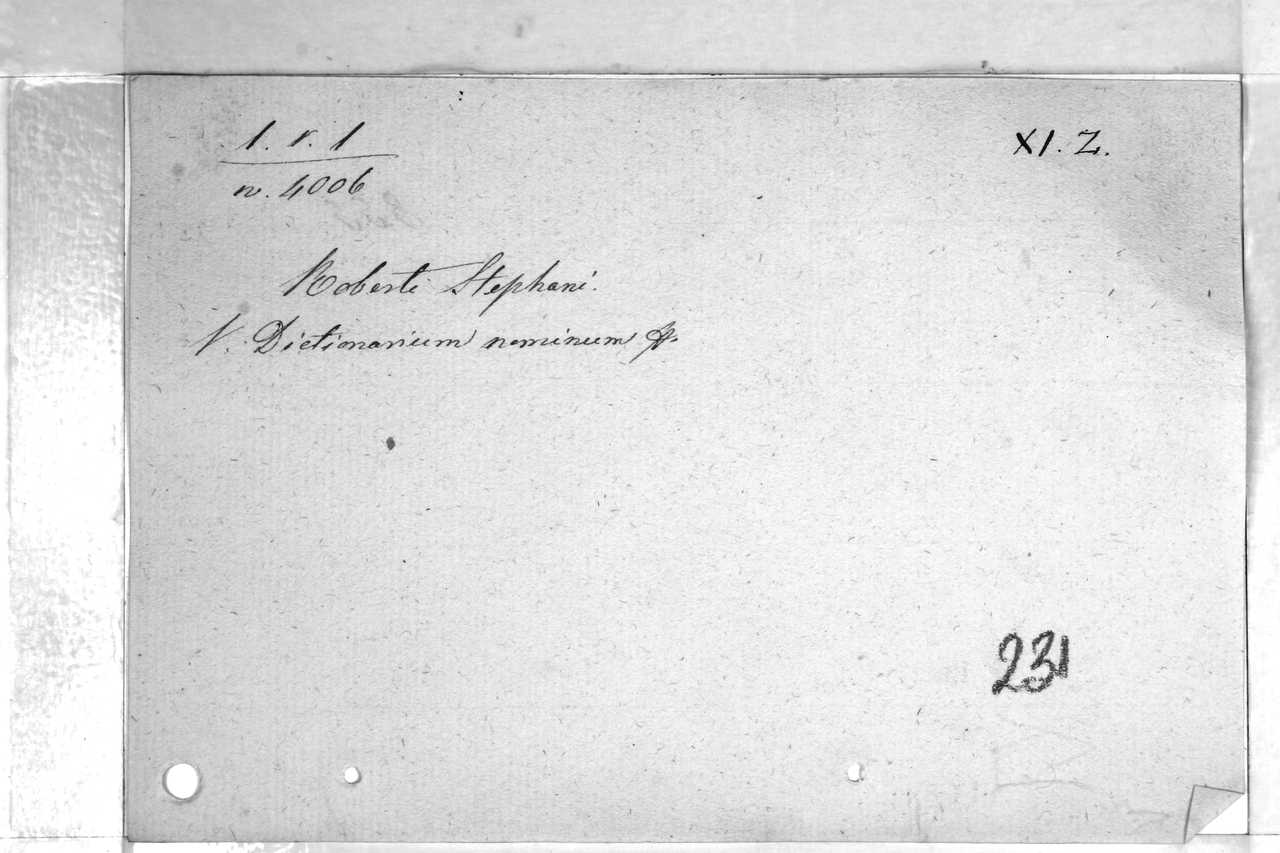 1. r. 1
XI. Z.
n. 4006
Roberti Stephani.
V. Dictionarium nominum
231